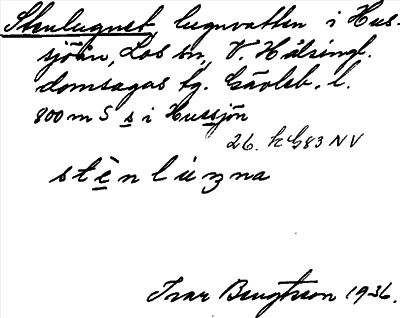 Stenlugnet, lugnvatten i Hus-
sjöån, Los sn, V. Hälsingl.
domsagas tg. Gävleb. l.
800 m S s i Hussjön
26. k G83 NV
stènluzna
Ivar Bengtsson 1936.